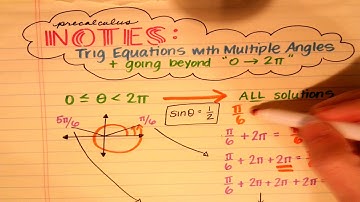 precalculus
NOTES:
Trig Equations with Multiple Angles
+ going beyond "0 → 2π"
0 ≤ θ < 2π → ALL solutions
sinθ = 1/2
π/6
5π/6 π/6
π/6 + 2π =
π/6 + 2π + 2π =
π/6 + 2π + 2π + 2π =